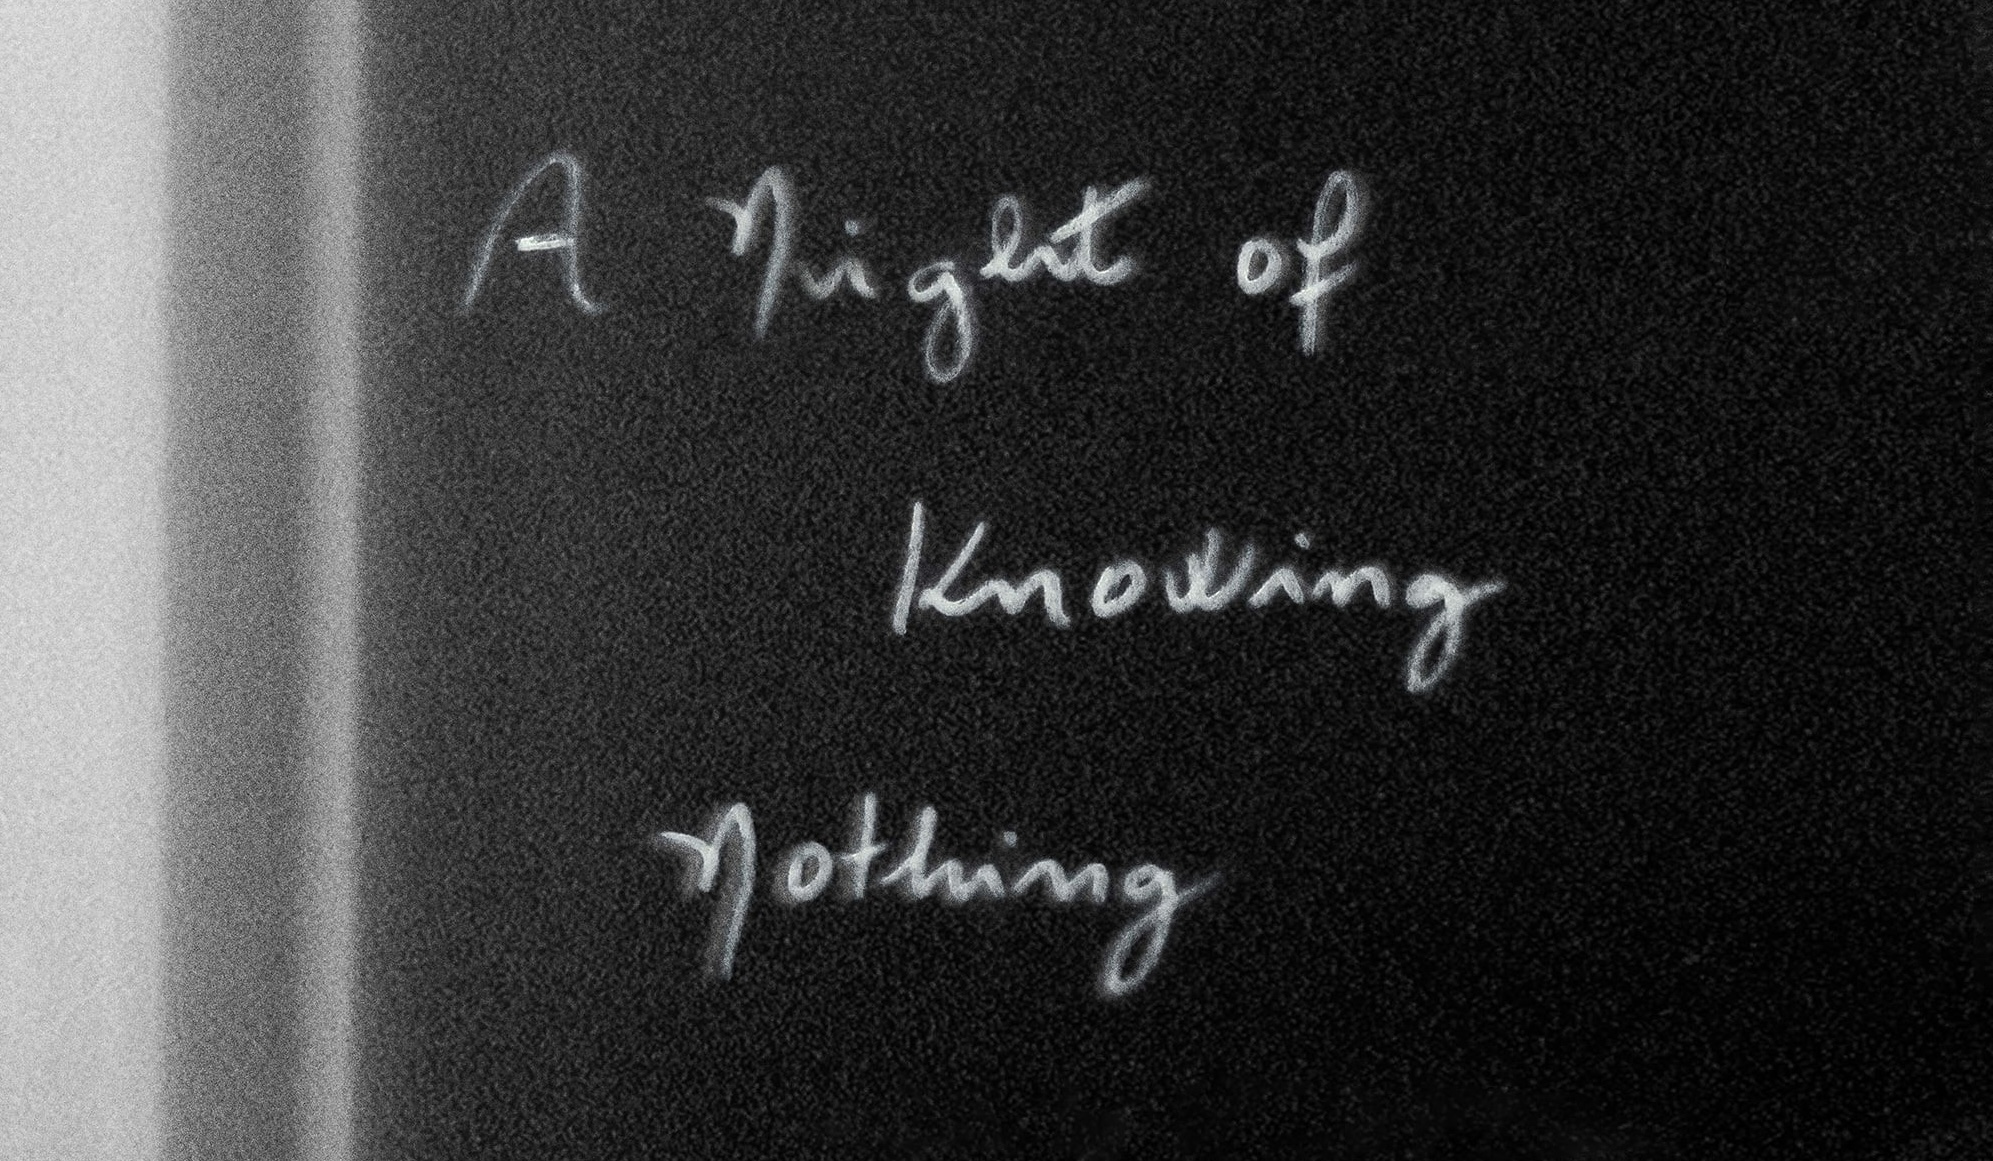 A Night of
Knowing
Nothing